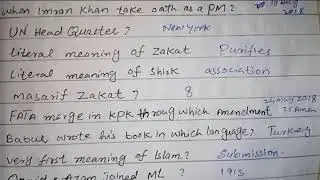 when Imran Khan take oath as a PM? 18 Aug 2018
UN Head Quarter? New York
Literal meaning of Zakat Purifies
Literal meaning of Shirk association
Masarif Zakat? 8
24 May 2018
FATA merge in KPK throug which Amendment 25 Amen
Babur wrote his book in which language, Turkey
Very first meaning of Islam? Submission.
Quaid e Azam joined ML? 1913